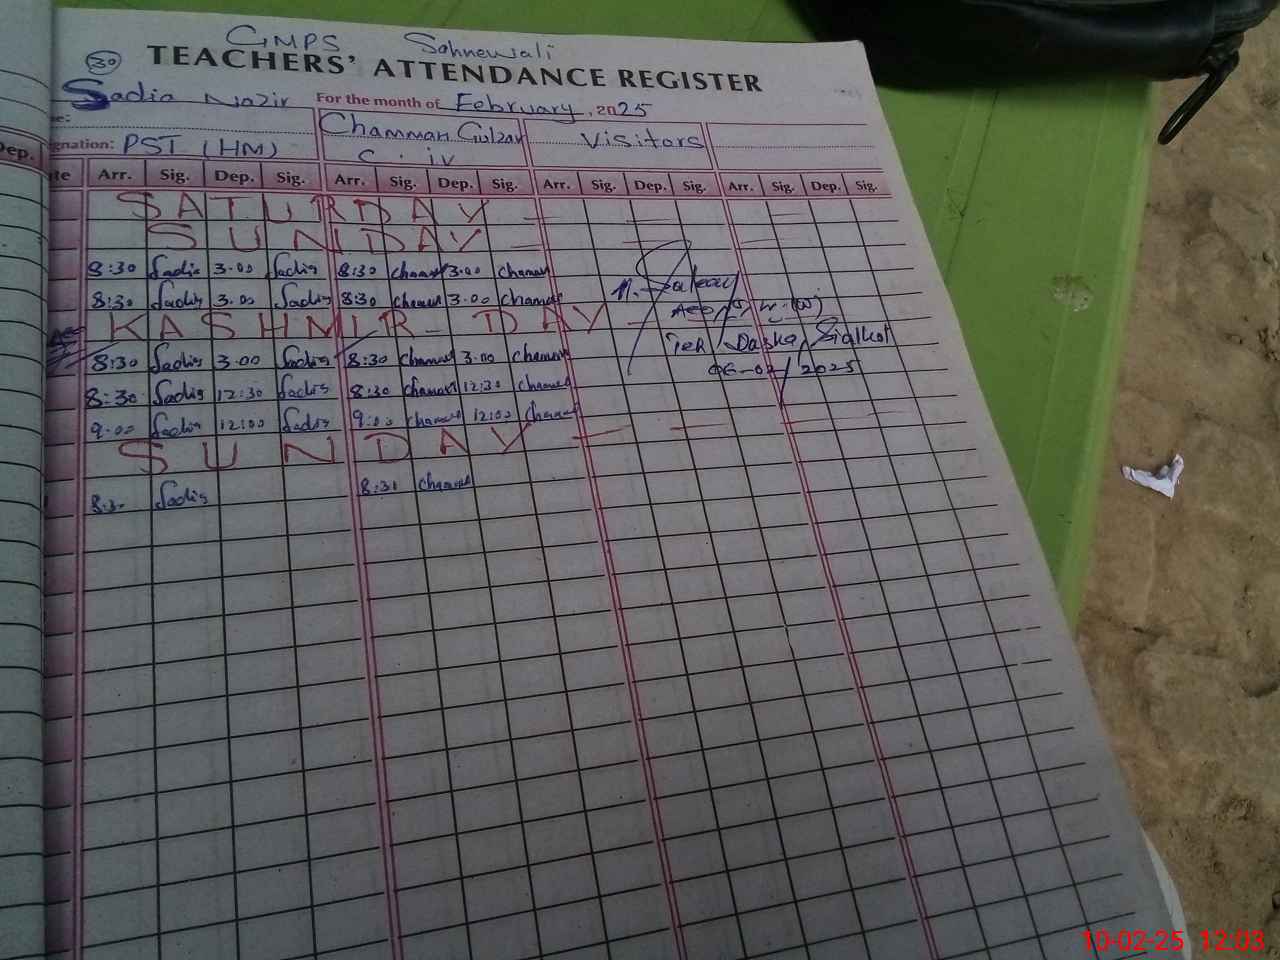 GMPS Sahnewali
30 TEACHERS' ATTENDANCE REGISTER
Sadia Nazir For the month of February, 2025
e: Chamman Gulzar Visitors
gnation: PST (HM) C. iv
Dep. te Arr. Sig. Dep. Sig. Arr. Sig. Dep. Sig. Arr. Sig. Dep. Sig. Arr. Sig. Dep. Sig.
SATURDAY
SUNDAY
8:30 Sadia 3.00 Sadia 8:30 Chaman 3.00 Chaman
8:30 Sadia 3.00 Sadia 8:30 Chaman 3.00 Chaman
KASHMIR DAY
8:30 Sadia 3.00 Sadia 8:30 Chaman 3.00 Chaman
Teh Daska, Sialkot
8:30 Sadia 12:30 Sadia 8:30 Chaman 12:30 Chaman
06-02/2025
9.00 Sadia 12:00 Sadia 9:00 Chaman 12:00 Chaman
SUNDAY
8:30 Sadia 8:30 Chaman
10-02-25 12:03